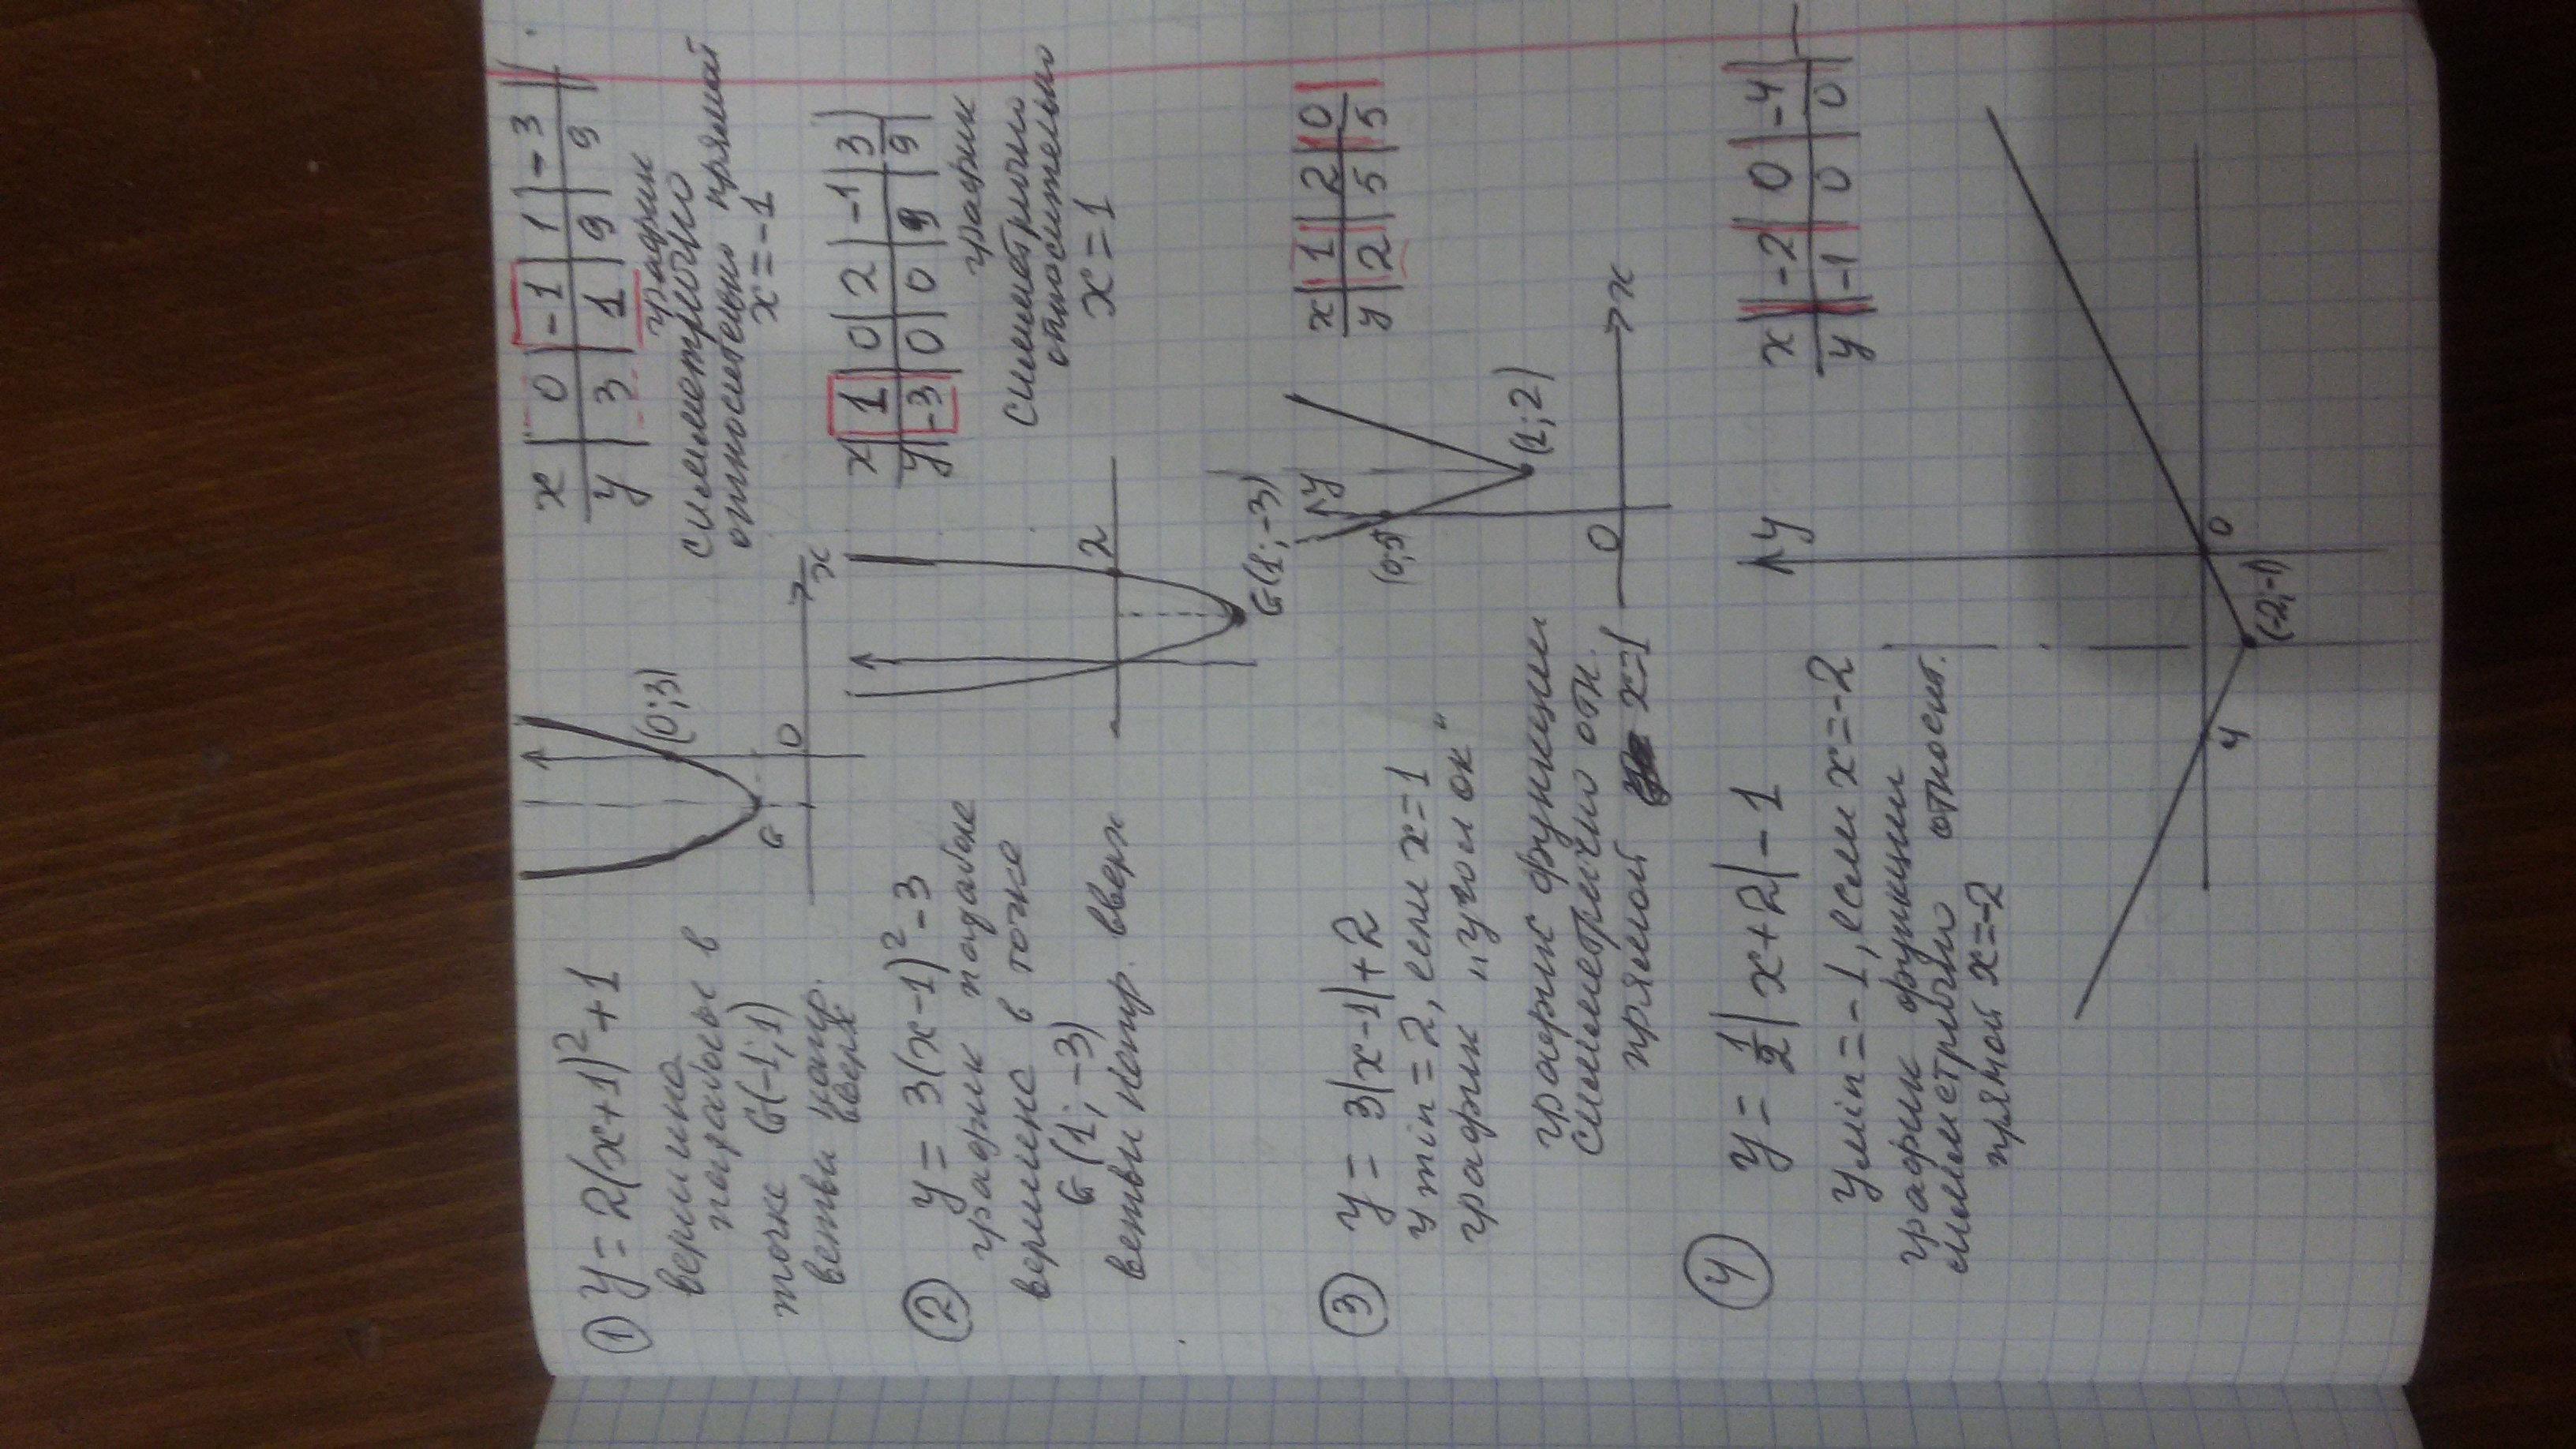 ① y = 2(x+1)² + 1
вершина
параболы в
точке G(-1; 1)
ветви напр.
вверх
(0; 3)
G
0
x
x | 0 | -1 | 1 | -3
y | 3 | 1 | 9 | 9
график
симметрично
относительно прямой
x = -1
② y = 3(x-1)² - 3
график парабола
вершина в точке
G(1; -3)
ветви напр. вверх
2
G(1; -3)
x | 1 | 0 | 2 | -1 | 3
y | -3 | 0 | 0 | 9 | 9
график
симметрично
относительно
x = 1
③ y = 3|x-1| + 2
y min = 2, если x = 1
график „уголок“
график функции
симметрично отн.
прямой x=1
y
(0; 5)
(1; 2)
0
x
x | 1 | 2 | 0
y | 2 | 5 | 5
④ y = 1/2 |x+2| - 1
y min = -1, если x = -2
график функции
симметрично относит.
прямой x = -2
y
4
0
(-2; -1)
x | -2 | 0 | -4
y | -1 | 0 | 0